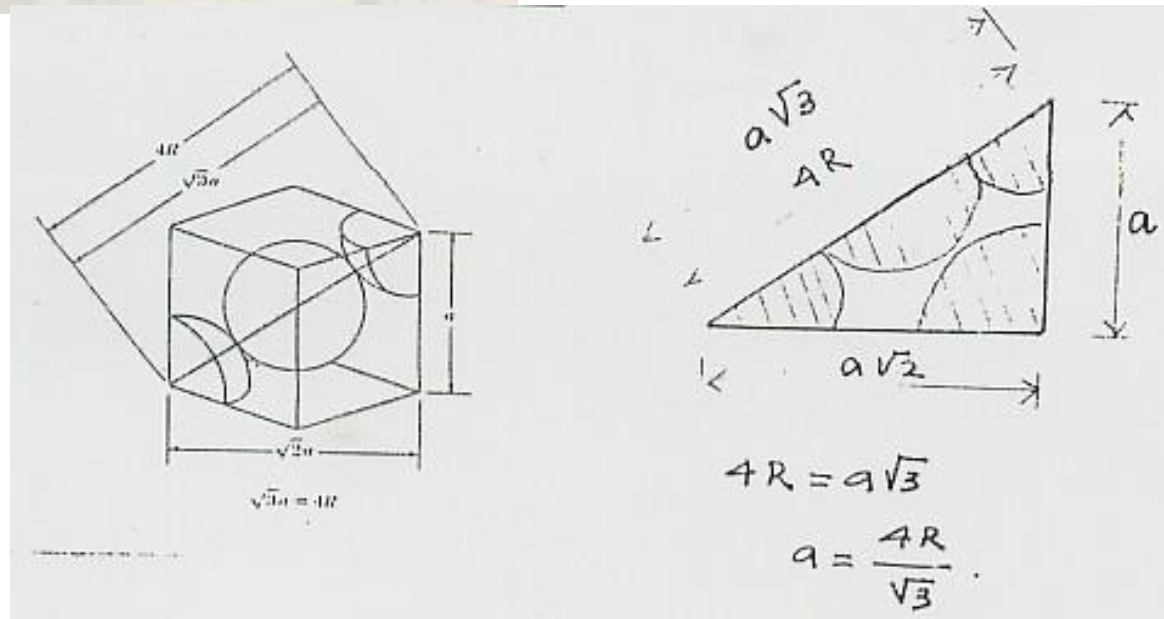 4R
√3a
a
√2a
√3a = 4R
a√3
4R
a
a√2
4R = a√3
a = 4R/√3 .